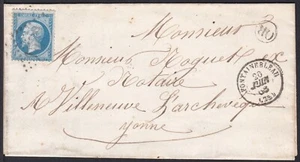 Monsieur
Monsieur Hoquet
Notaire
à Villeneuve L'archevêque
Yonne
OR
FONTAINEBLEAU
20
JUIN